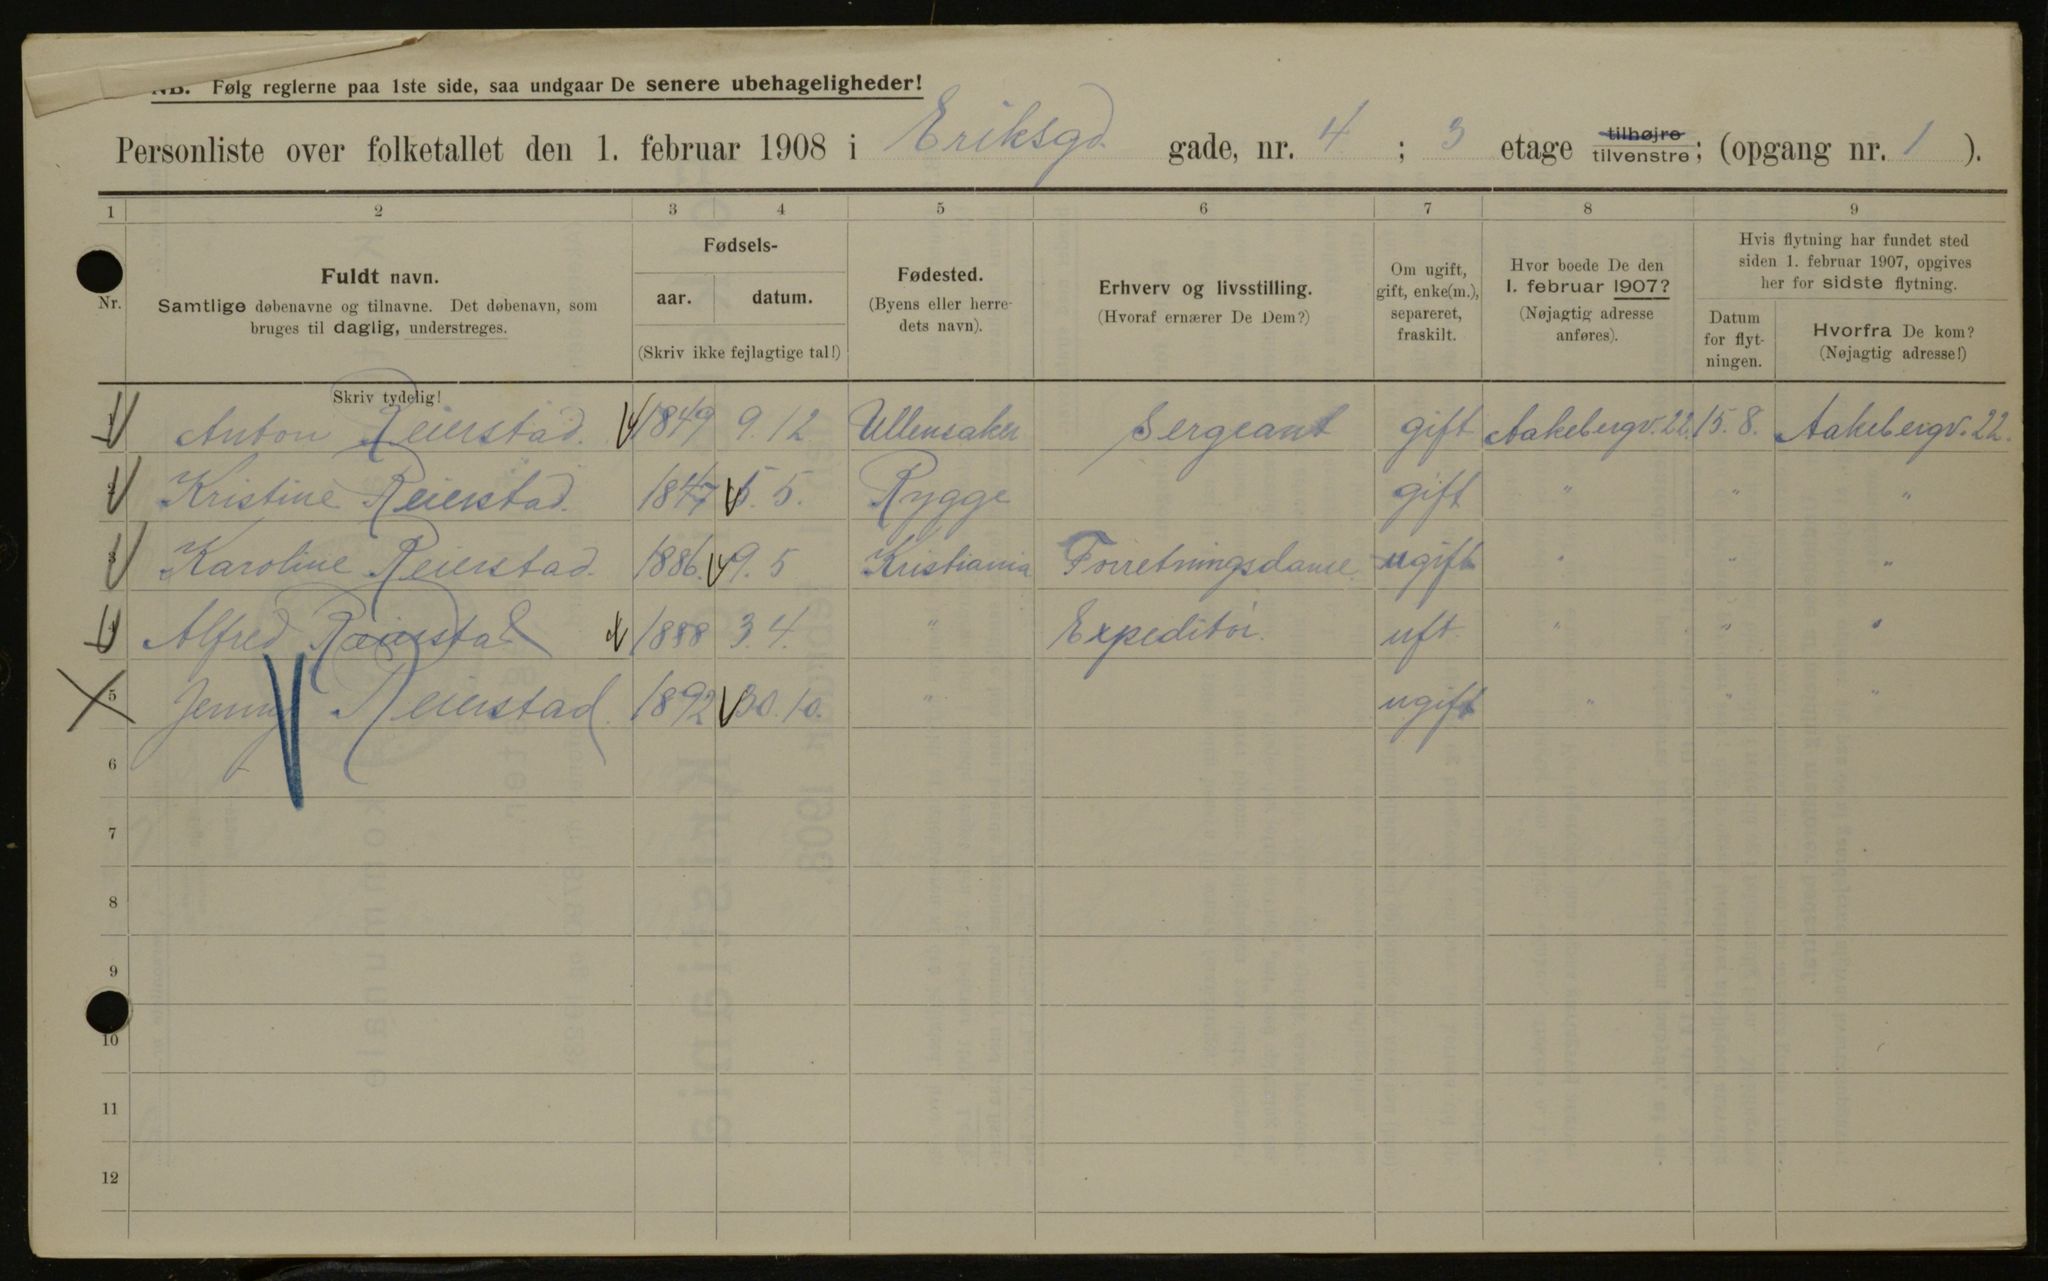 NB. Følg reglerne paa 1ste side, saa undgaar De senere ubehageligheder!
Personliste over folketallet den 1. februar 1908 i Eriksgd. gade, nr. 4 ; 3 etage tilhøjre tilvenstre; (opgang nr. 1 ).
1 2 3 4 5 6 7 8 9
Nr.
Fuldt navn.
Samtlige døbenavne og tilnavne. Det døbenavn, som
bruges til daglig, understreges.
Skriv tydelig!
Fødsels-
aar. datum.
(Skriv ikke fejlagtige tal!)
Fødested.
(Byens eller herre-
dets navn).
Erhverv og livsstilling.
(Hvoraf ernærer De Dem?)
Om ugift,
gift, enke(m.),
separeret,
fraskilt.
Hvor boede De den
1. februar 1907?
(Nøjagtig adresse
anføres).
Hvis flytning har fundet sted
siden 1. februar 1907, opgives
her for sidste flytning.
Datum
for flyt-
ningen.
Hvorfra De kom?
(Nøjagtig adresse!)
1 Anton Reierstad. 1849 9. 12 Ullensaker Sergeant gift Aakebergv. 22. 15. 8. Aakebergv. 22.
2 Kristine Reierstad. 1847 5. 5. Rygge gift " " "
3 Karoline Reierstad. 1886. 9. 5 Kristiania Forretningsdame. ugift " " "
4 Alfred Reierstad 1888 3. 4. " Expeditør. uft. " " "
5 Jenny Reierstad. 1892 30. 10. " ugift " " "
6
7
8
9
10
11
12